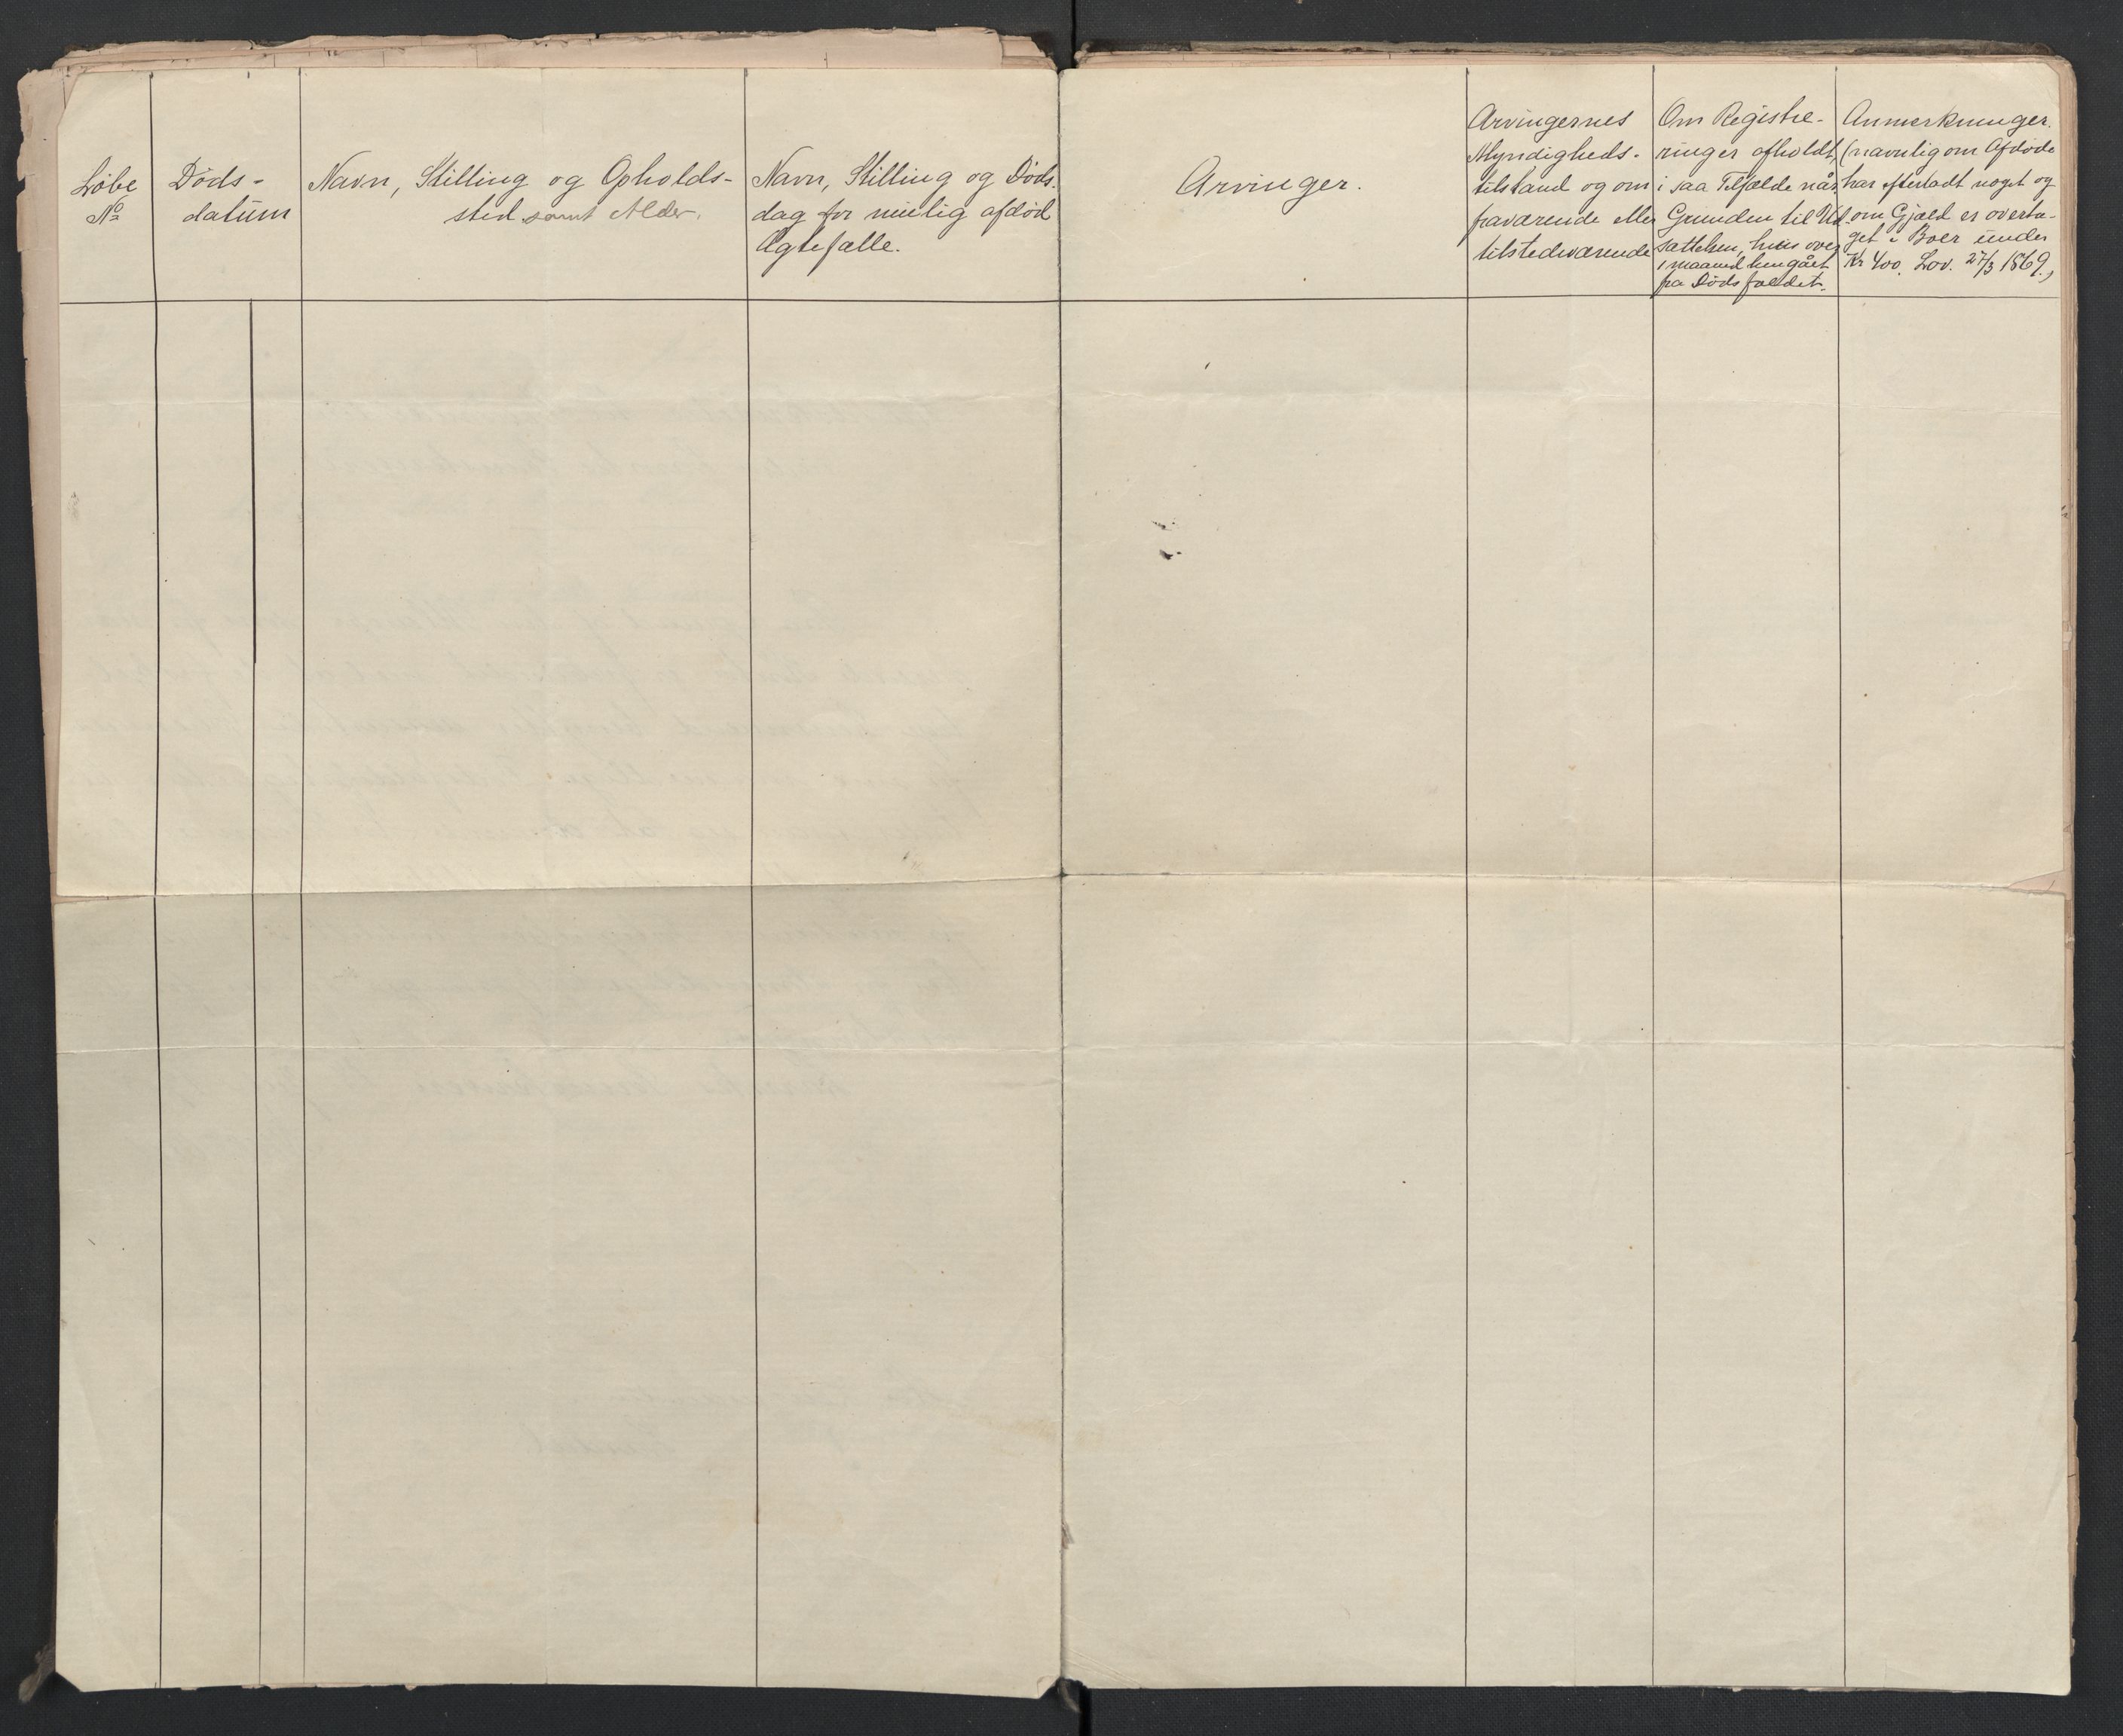 Löbe
No
Døds-
datum
Navn, Stilling og Opholds-
sted samt Alder.
Navn, Stilling og Døds-
dag for mulig afdød
Ægtefælle.
Arvinger.
Arvingernes
Myndigheds-
tilstand og om
fraværende eller
tilstedeværende
Om Registre-
ringer afholdt,
i saa Tilfælde når,
Grunden til Ud-
sættelsen, hvis over
1 maaned hengået
fra Dødsfaldet.
Anmerkninger.
(navnlig om Afdøde
har efterladt noget og
om Gjæld er overta-
get i Boer under
Kr 400. Lov. 27/3 1869.)